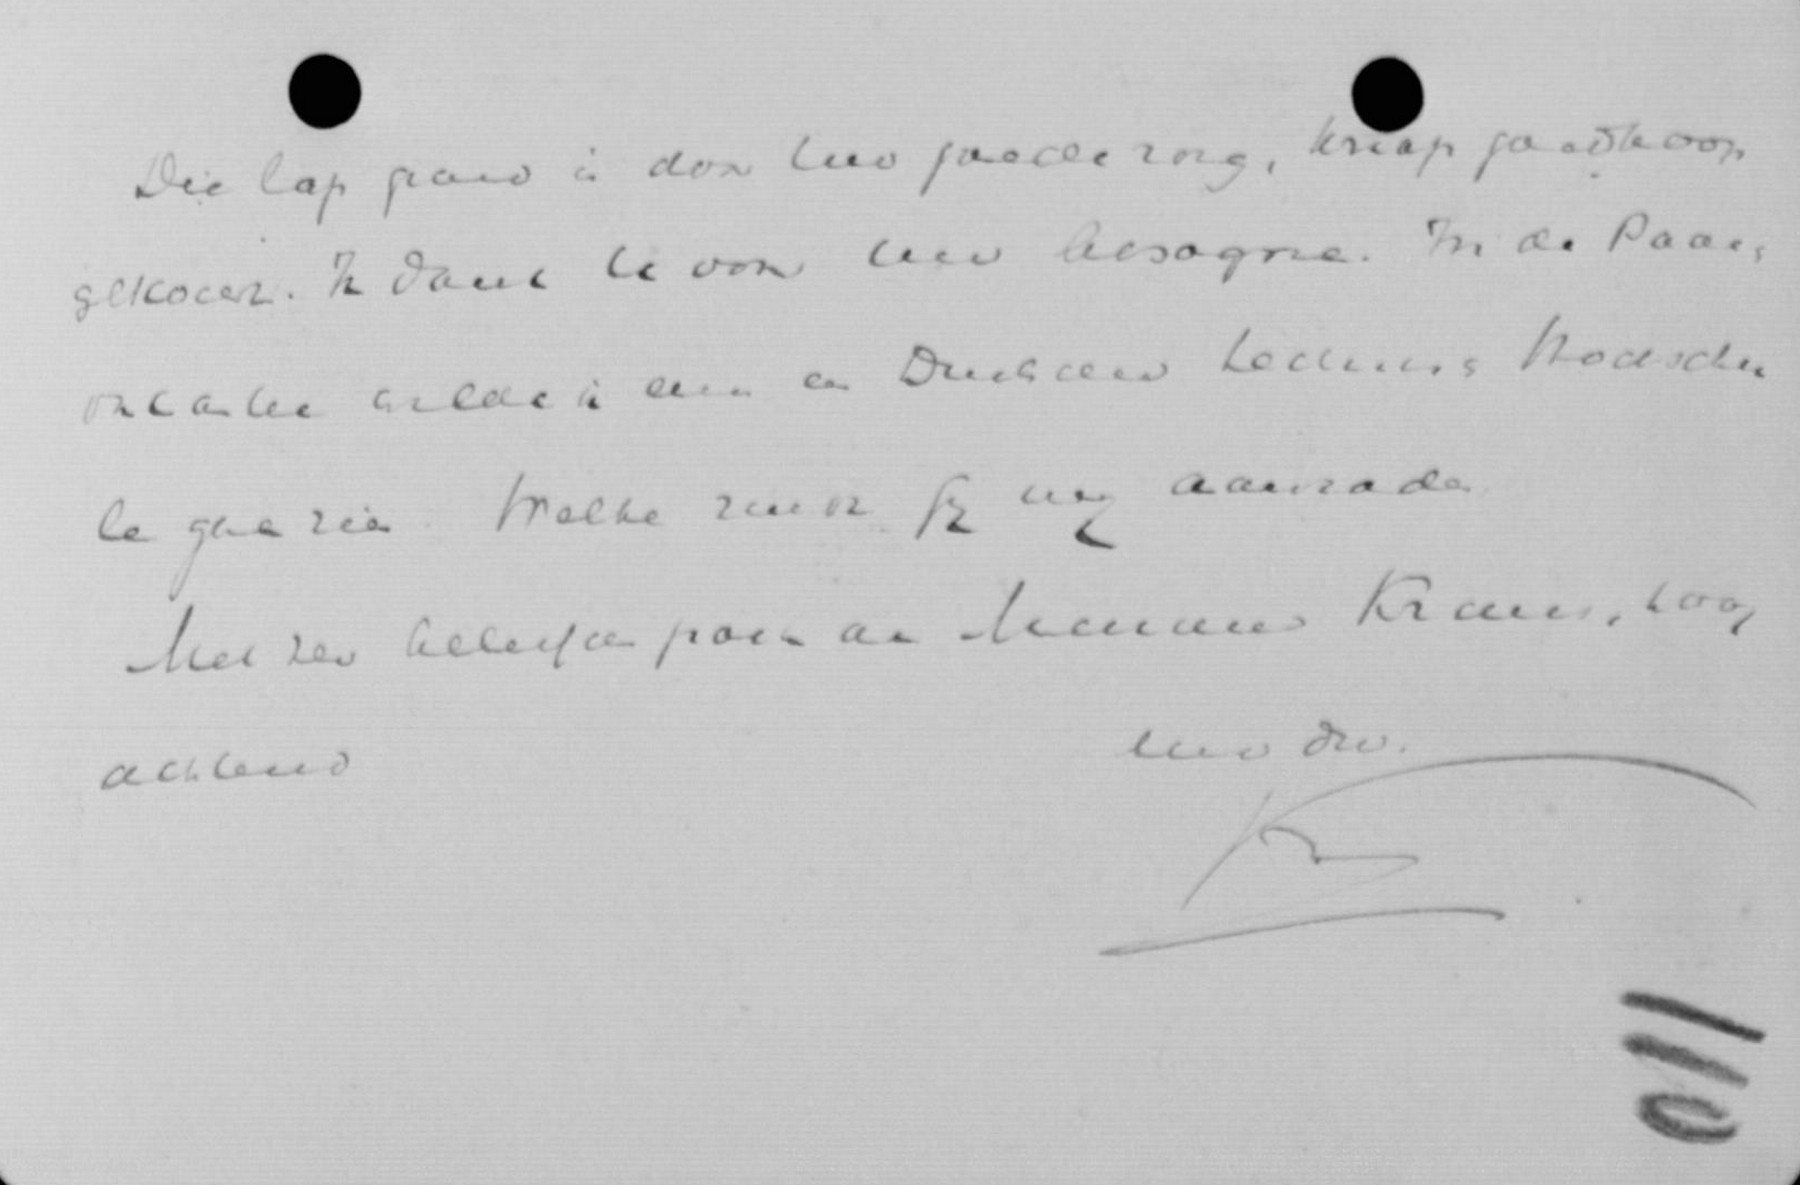 Die lap grond is door Uw goede zorg, knap goedkoop
gekocht. Ik dank U voor Uw besogne. In de Paas-
vacantie wilde ik een en Duitschland
te gaan zien. Welke zoudt gij mij aanraden
Met zeer beleefde groeten aan Mevrouw Kraus, hoog
achtend Uw dw.
110